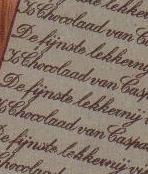 De fijnste lekkernij
Chocolaad van
De fijnste lekkernij
Chocolaad van Casp
De fijnste lekkernij v
Chocolaad van Caspa
De fijnste lekkernij v
Chocolaad van Caspa
De fijnste lekkernij va
Chocolaad van